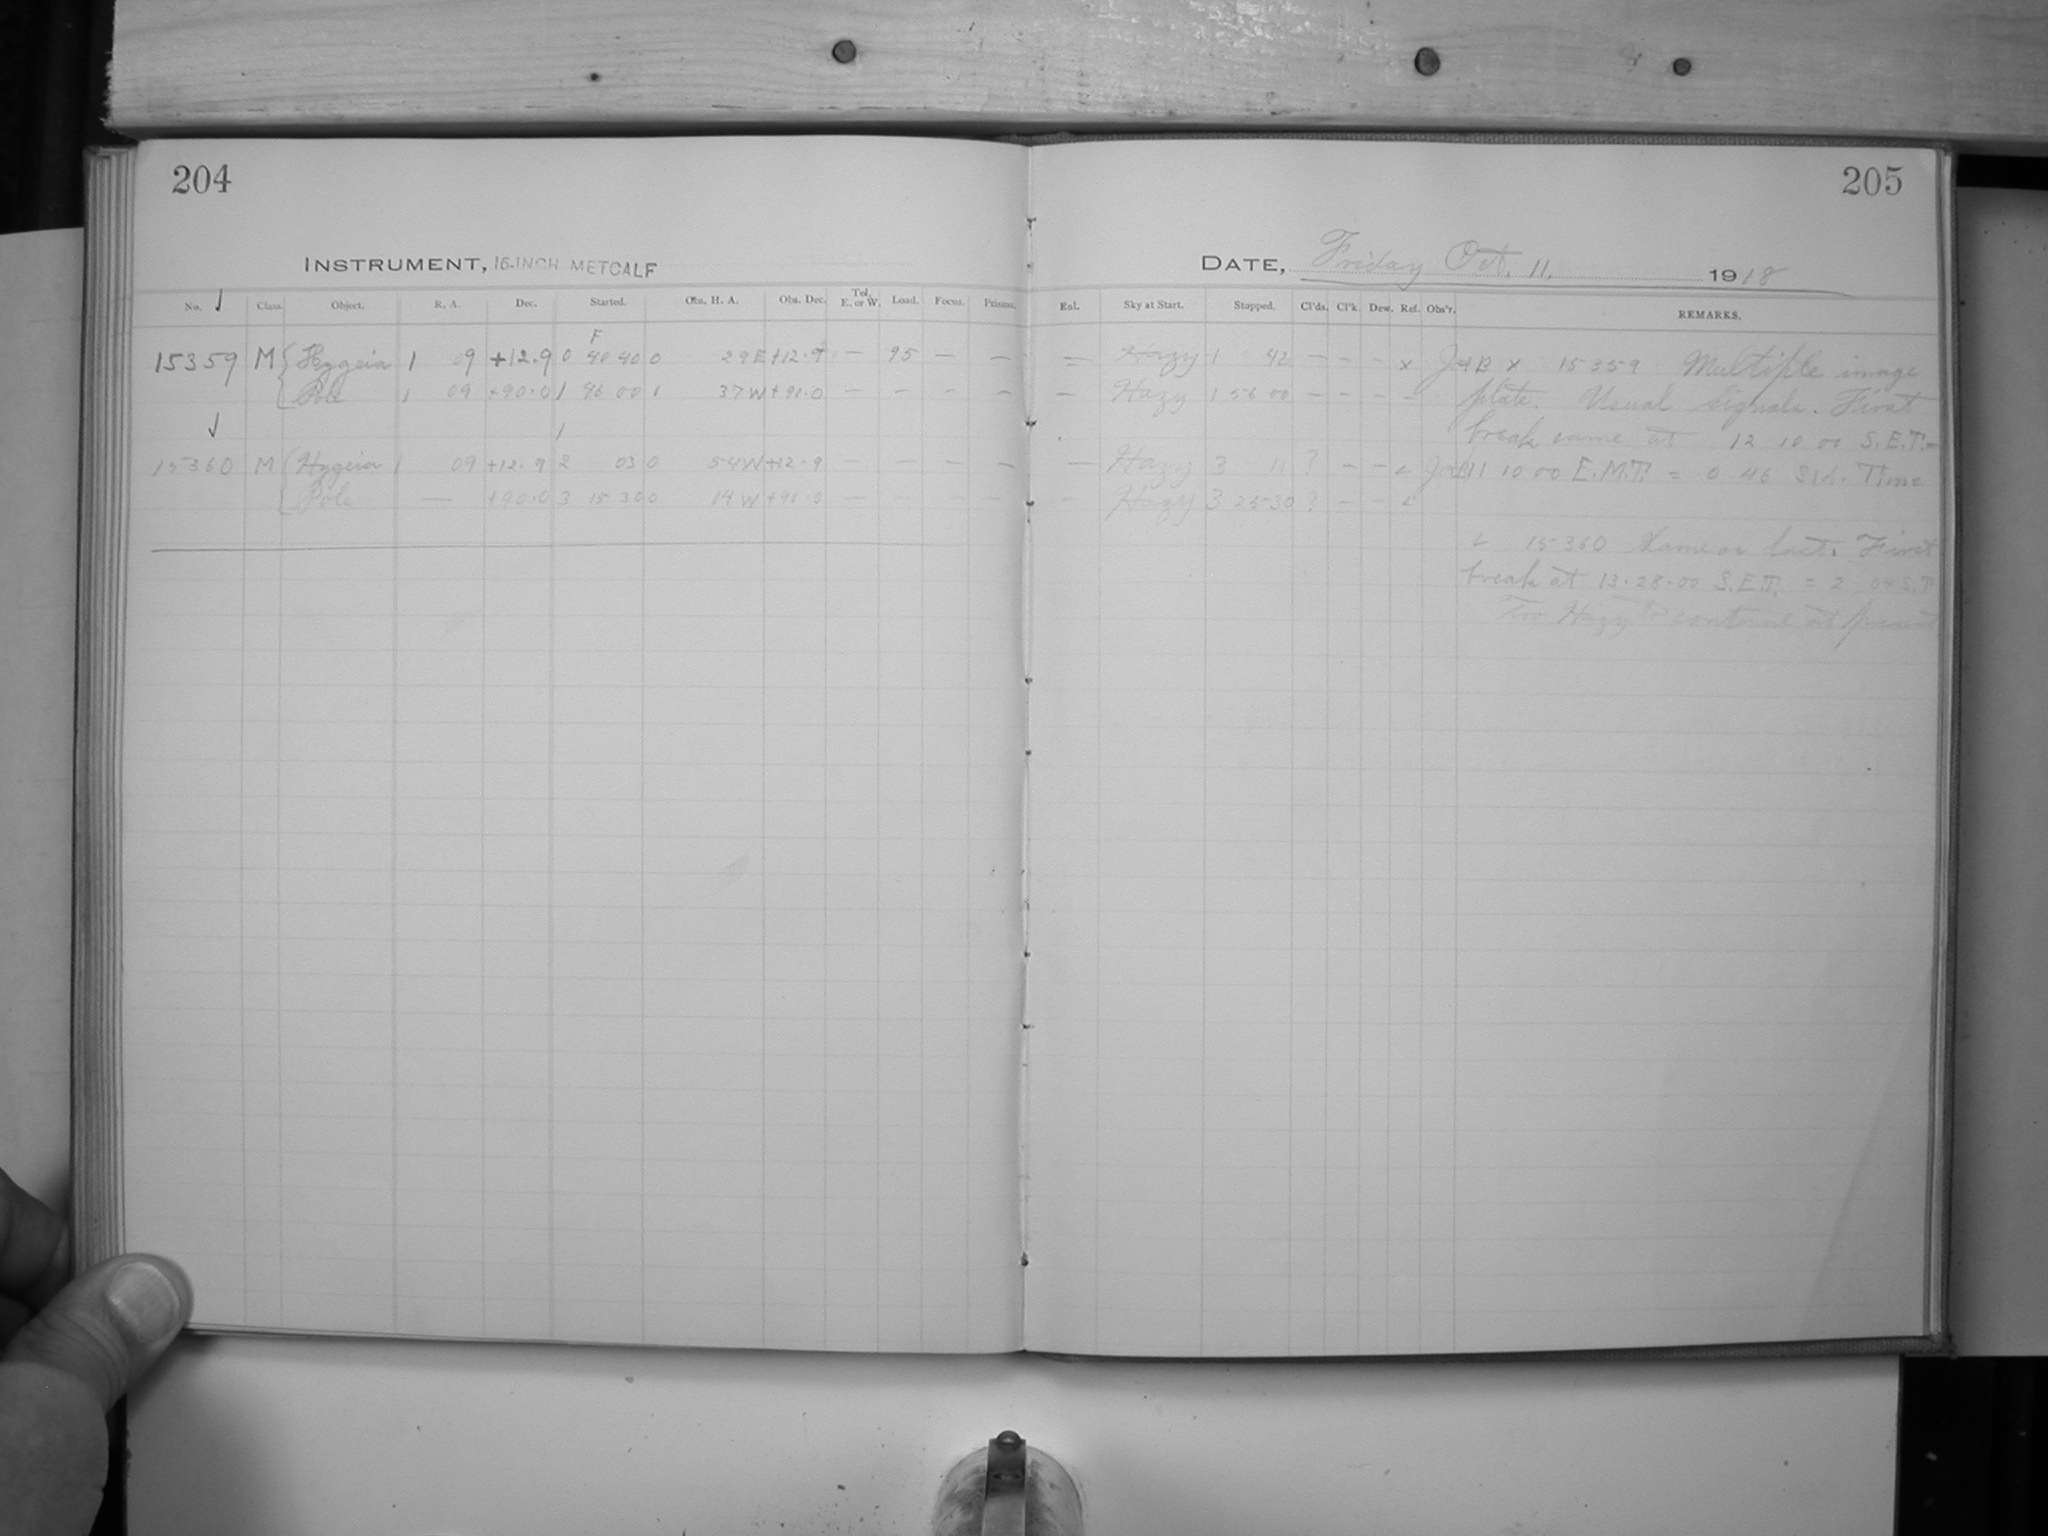 204
205
INSTRUMENT, 16-INCH METCALF
DATE, Friday Oct. 11. 1918
No. Class Object. R. A. Dec. Started. Obs. H. A. Obs. Dec. Tel. E. or W. Load. Focus. Prisms. Enl. Sky at Start. Stopped. Cl'ds. Cl'k. Dew. Ref. Obs'r. REMARKS.
F
15359 M Hygeia 1 09 +12.9 0 40 40 0 29 E +12.9 — 95 — — — Hazy 1 42 — — — x x 15359 Multiple image
Pole 1 09 +90.0 1 46 00 0 37 W +90.0 — — — — — Hazy 1 56 00 — — — — plate. Usual signals. First
break came at 12 10 00 S.E.T. =
15360 M Hygeia 1 09 +12.9 2 03 0 54 W +12.9 — — — — — Hazy 3 11 ? — — L 11 10 00 E.M.T. = 0 46 Sid. Time
Pole — +90.0 3 15 30 0 14 W +90.0 — — — — — Hazy 3 25 30 ? — — L
L 15360 Same as last. First
break at 13.28.00 S.E.T. = 2 04 S.T.
Too Hazy to continue at present